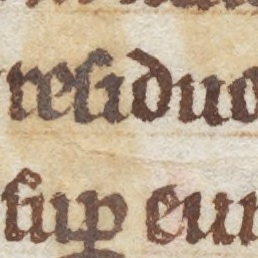 reſiduo
ſuꝑ eu